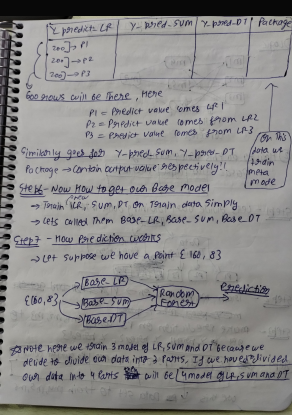 Y_predict_LR Y_pred_SUM Y_pred_DT Package
200] → P1
200] → P2
200] → P3
600 rows will be There, Here
P1 = Predict value comes LR1
P2 = Predict value comes from LR2
P3 = Predict value comes from LR3
Similarly goes for Y_pred_SUM, Y_pred_DT
Package → Contain output value respectively!!
On This data we train meta mode
Step6 - Now How to get our Base model
→ Train LR, SUM, DT on Train data simply
→ Lets called Them Base_LR, Base_SUM, Base_DT
Step7 - How Prediction works
→ Let suppose we have a point {160, 8}
Base_LR
{160, 8} Base_SUM Random Forest Prediction
Base_DT
Note here we train 3 model of LR, SUM and DT because we
decide to divide our data into 3 Parts, If we have divided
our data into 4 Parts will be 4 model of LR, SUM and DT